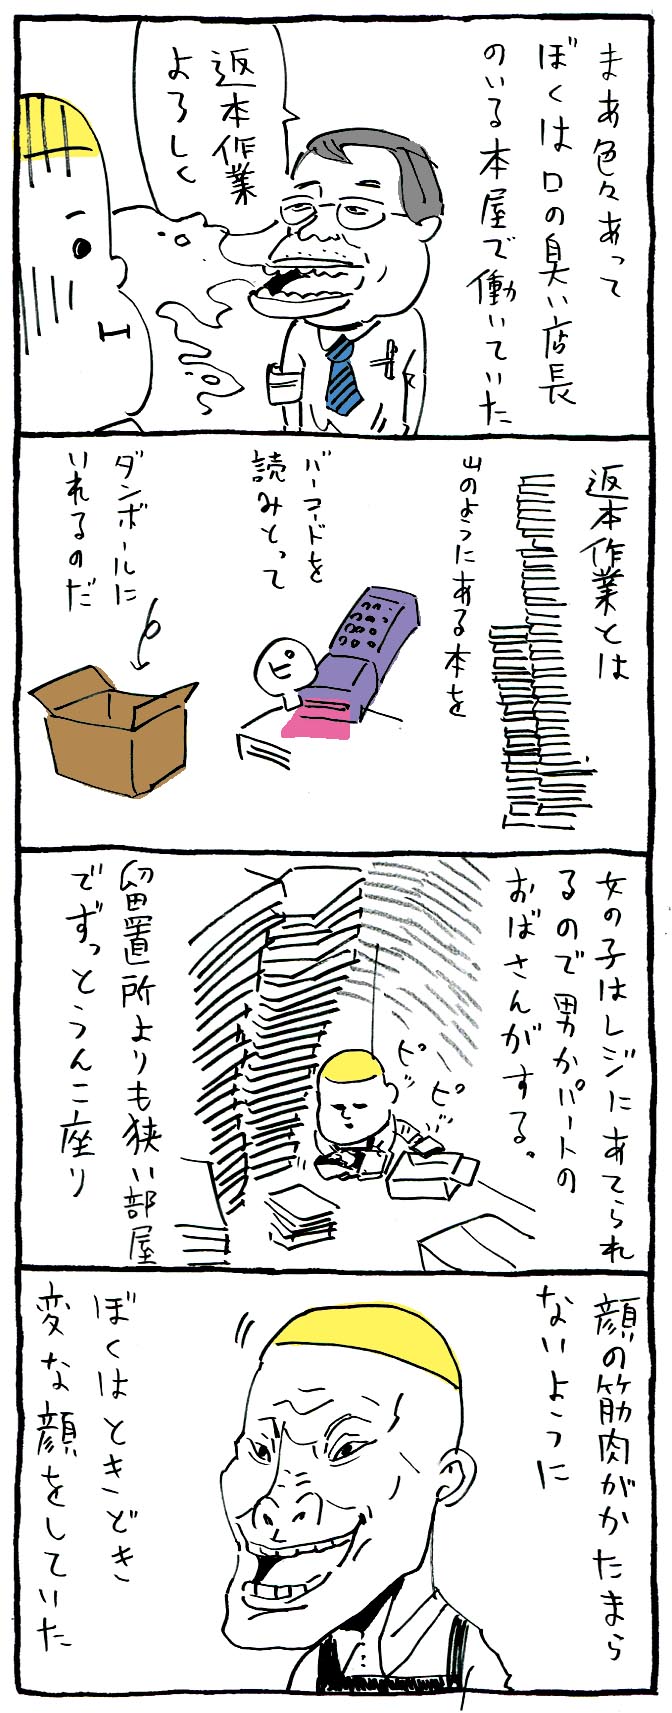 まあ色々あって
ぼくは口の臭い店長
のいる本屋で働いていた
返本作業
よろしく
返本作業とは
山のようにある本を
バーコードを
読みとって
ダンボールに
いれるのだ
女の子はレジにあてられ
るので男かパートの
おばさんがする。
ピッ
ピッ
留置所よりも狭い部屋
でずっとうんこ座り
顔の筋肉がかたまら
ないように
ぼくはときどき
変な顔をしていた